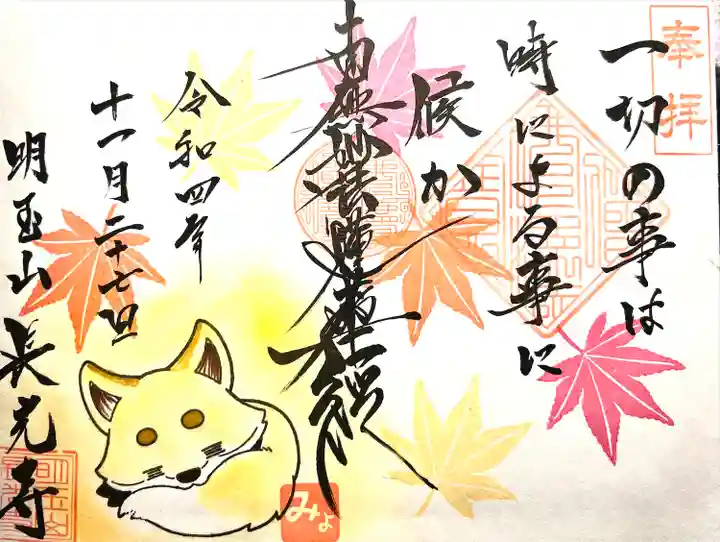 奉拝
一切の事は
時による事に
候か
南無妙法蓮華経
令和四年
十一月二十七日
明玉山 長光寺
みょ